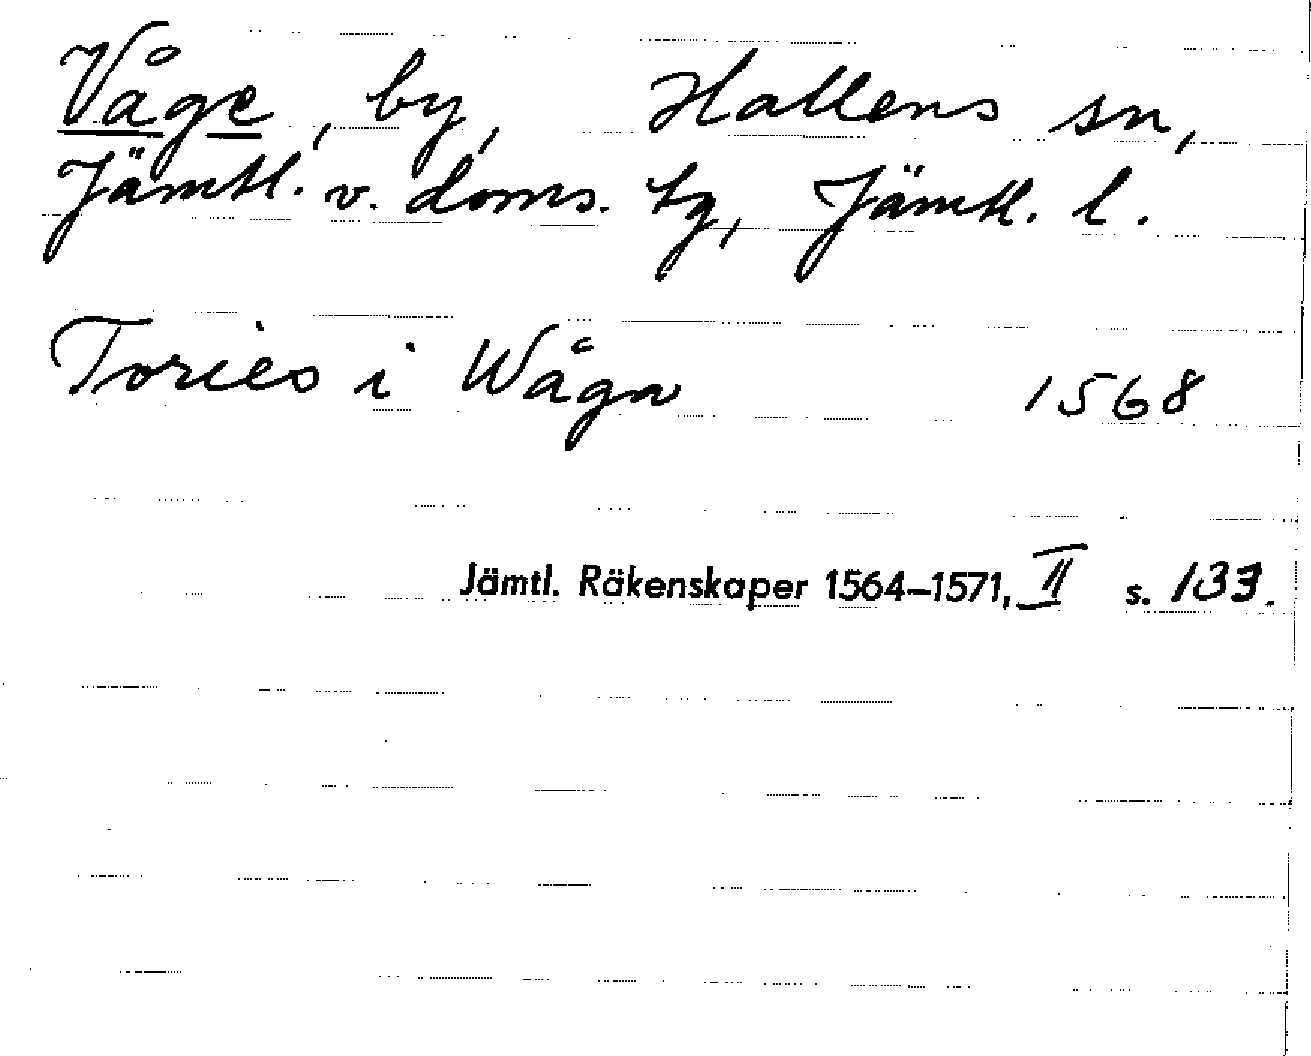 Våge, by, Hallens sn,
Jämtl. v. doms. tg, Jämtl. l.
Tories i Wåga 1568
Jämtl. Räkenskaper 1564–1571, II s. 133.